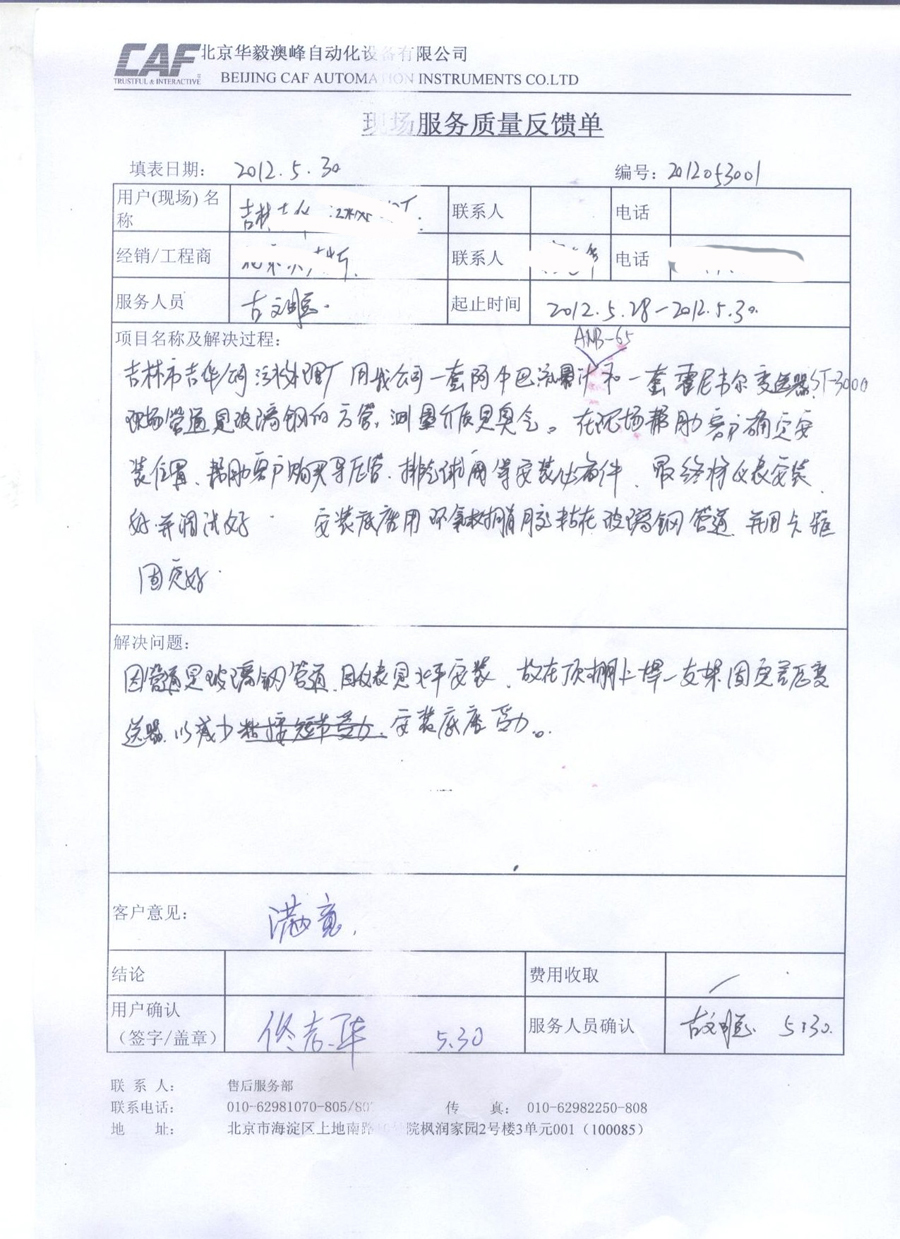 CAF 北京华毅澳峰自动化设备有限公司
TRUSTFUL & INTERACTIVE
BEIJING CAF AUTOMATION INSTRUMENTS CO.LTD
现场服务质量反馈单
填表日期: 2012.5.30 编号: 2012053001
用户(现场)名称 吉林 联系人 电话
经销/工程商 联系人 电话
服务人员 古文 起止时间 2012.5.28-2012.5.30.
项目名称及解决过程:
ANB-65
吉林市吉华 污水处理厂用我公司一套阿牛巴流量计和一套霍尼韦尔变送器ST-3000
现场管道是玻璃钢的方管, 测量介质是臭气。在现场帮助客户确定安
装位置、帮助客户购买导压管、排污 阀等安装必备件、最终将仪表安装
好并调试好 安装底座用环氧树脂胶粘在玻璃钢管道、并用卡箍
固定好.
解决问题:
因管道是玻璃钢管道、因仪表是水平安装、故在顶棚上焊一支架固定差压变
送器、以减少粘接短节受力、安装底座受力。
客户意见: 满意.
结论 费用收取
用户确认
(签字/盖章) 佟志 5.30 服务人员确认 古文 5.30.
联 系 人: 售后服务部
联系电话: 010-62981070-805/80 传 真: 010-62982250-808
地 址: 北京市海淀区上地南路 院枫润家园2号楼3单元001(100085)